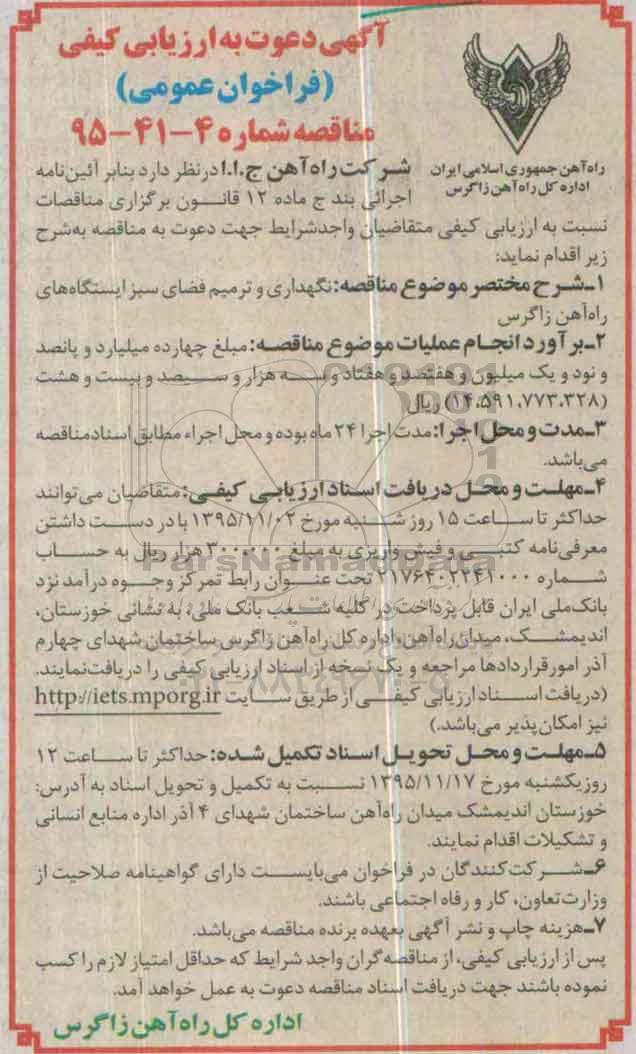 آگهی دعوت به ارزیابی کیفی
(فراخوان عمومی)
مناقصه شماره ۴-۴۱-۹۵
راه‌آهن جمهوری اسلامی ایران
اداره کل راه‌آهن زاگرس
شرکت راه‌آهن ج.ا.ا در نظر دارد بنابر آئین‌نامه
اجرائی بند ج ماده ۱۲ قانون برگزاری مناقصات
نسبت به ارزیابی کیفی متقاضیان واجدشرایط جهت دعوت به مناقصه به‌شرح
زیر اقدام نماید:
۱ـ شرح مختصر موضوع مناقصه: نگهداری و ترمیم فضای سبز ایستگاه‌های
راه‌آهن زاگرس
۲ـ برآورد انجام عملیات موضوع مناقصه: مبلغ چهارده میلیارد و پانصد
و نود و یک میلیون و هفتصد و هفتاد و سه هزار و سیصد و بیست و هشت
(۱۴،۵۹۱،۷۷۳،۳۲۸) ریال
۳ـ مدت و محل اجرا: مدت اجرا ۲۴ ماه بوده و محل اجراء مطابق اسناد مناقصه
می‌باشد.
۴ـ مهلت و محل دریافت اسناد ارزیابی کیفی: متقاضیان می‌توانند
حداکثر تا ساعت ۱۵ روز شنبه مورخ ۱۳۹۵/۱۱/۰۲ با در دست داشتن
معرفی‌نامه کتبی و فیش واریزی به مبلغ ۳۰۰،۰۰۰ هزار ریال به حساب
شماره ۲۱۷۶۴۰۲۲۴۱۰۰۰ تحت عنوان رابط تمرکز وجوه درآمد نزد
بانک‌ملی ایران قابل پرداخت در کلیه شعب بانک ملی، به نشانی خوزستان،
اندیمشک، میدان راه‌آهن، اداره کل راه‌آهن زاگرس ساختمان شهدای چهارم
آذر امور قراردادها مراجعه و یک نسخه از اسناد ارزیابی کیفی را دریافت نمایند.
(دریافت اسناد ارزیابی کیفی از طریق سایت http://iets.mporg.ir
نیز امکان‌پذیر می‌باشد.)
۵ـ مهلت و محل تحویل اسناد تکمیل شده: حداکثر تا ساعت ۱۲
روز یکشنبه مورخ ۱۳۹۵/۱۱/۱۷ نسبت به تکمیل و تحویل اسناد به آدرس:
خوزستان اندیمشک میدان راه‌آهن ساختمان شهدای ۴ آذر اداره منابع انسانی
و تشکیلات اقدام نمایند.
۶ـ شرکت‌کنندگان در فراخوان می‌بایست دارای گواهینامه صلاحیت از
وزارت تعاون، کار و رفاه اجتماعی باشند.
۷ـ هزینه چاپ و نشر آگهی بعهده برنده مناقصه می‌باشد.
پس از ارزیابی کیفی، از مناقصه‌گران واجد شرایط که حداقل امتیاز لازم را کسب
نموده باشند جهت دریافت اسناد مناقصه دعوت به عمل خواهد آمد.
اداره کل راه‌آهن زاگرس
ParsNamadData